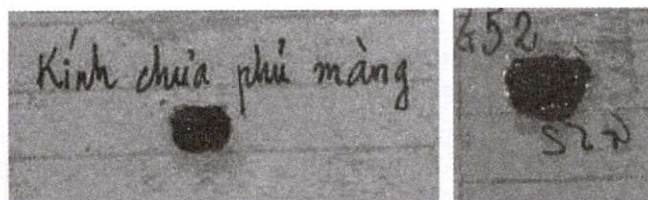 Kính chưa phủ màng
452